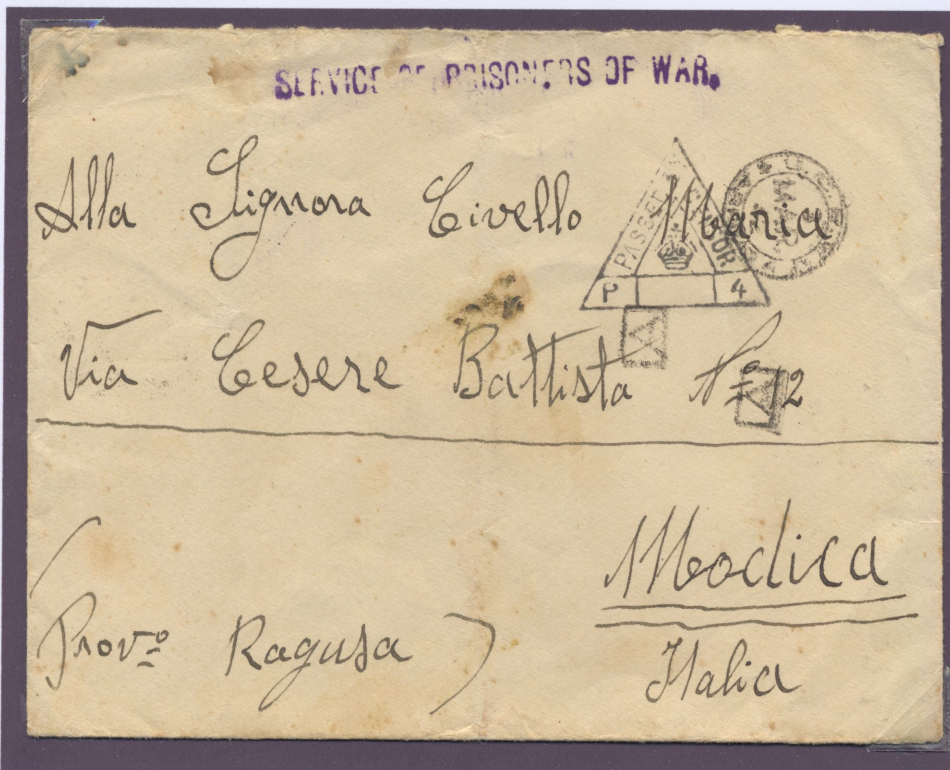 SERVICE OF PRISONERS OF WAR.
PASSED
FOR
P 4
Alla Signora Civello Maria
Via Cesere Battista Nº 12
Modica
(Provº Ragusa)
Italia